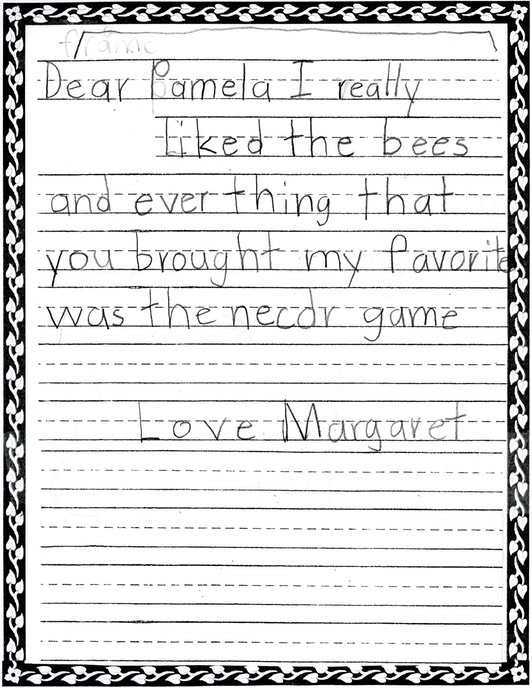 frame
Dear Pamela I really
liked the bees
and ever thing that
you brought my favorite
was the necdr game
Love Margaret